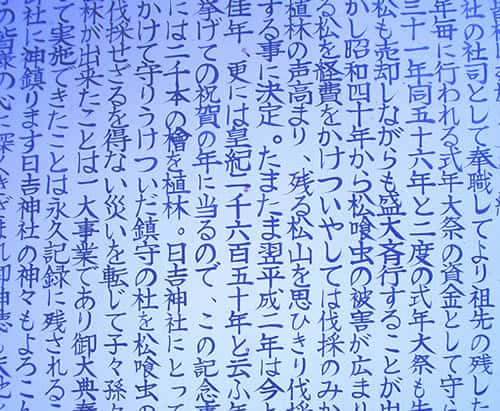 社の社司として奉職してより祖先の残した
年毎に行われる式年大祭の資金として守
三十一年同五十六年と二度の式年大祭も
松も売却しながらも盛大斉行することが出
かし昭和四十年から松喰虫の被害が広まり
る松を経費をかけついやしては伐採のみか
植林の声高まり、残る松山を思ひきり伐採
する事に決定。たまたま翌平成二年は今
佳年 更には皇紀二千六百五十年と云ふ年
挙げての祝賀の年に当るので、この記念事
には二千本の檜を植林。日吉神社にとっ
かけて守りうけついだ鎮守の杜を松喰虫の
伐採せざるを得ない災いを転じて子々孫々
林が出来たことは一大事業であり御大典奉
て実施できたことは永久記録に残されるこ
社に神鎮ります日吉神社の神々もよろこ
皆様の心に深く